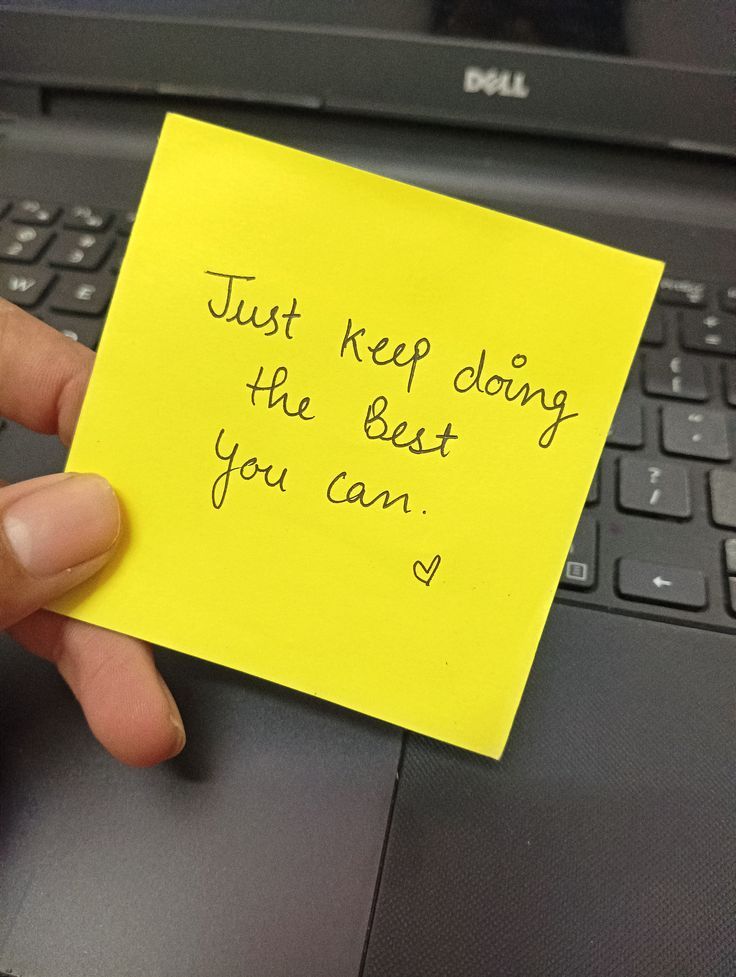 DELL
2
3
W
E
Just keep doing
the Best
You can.
♡
?
/
←